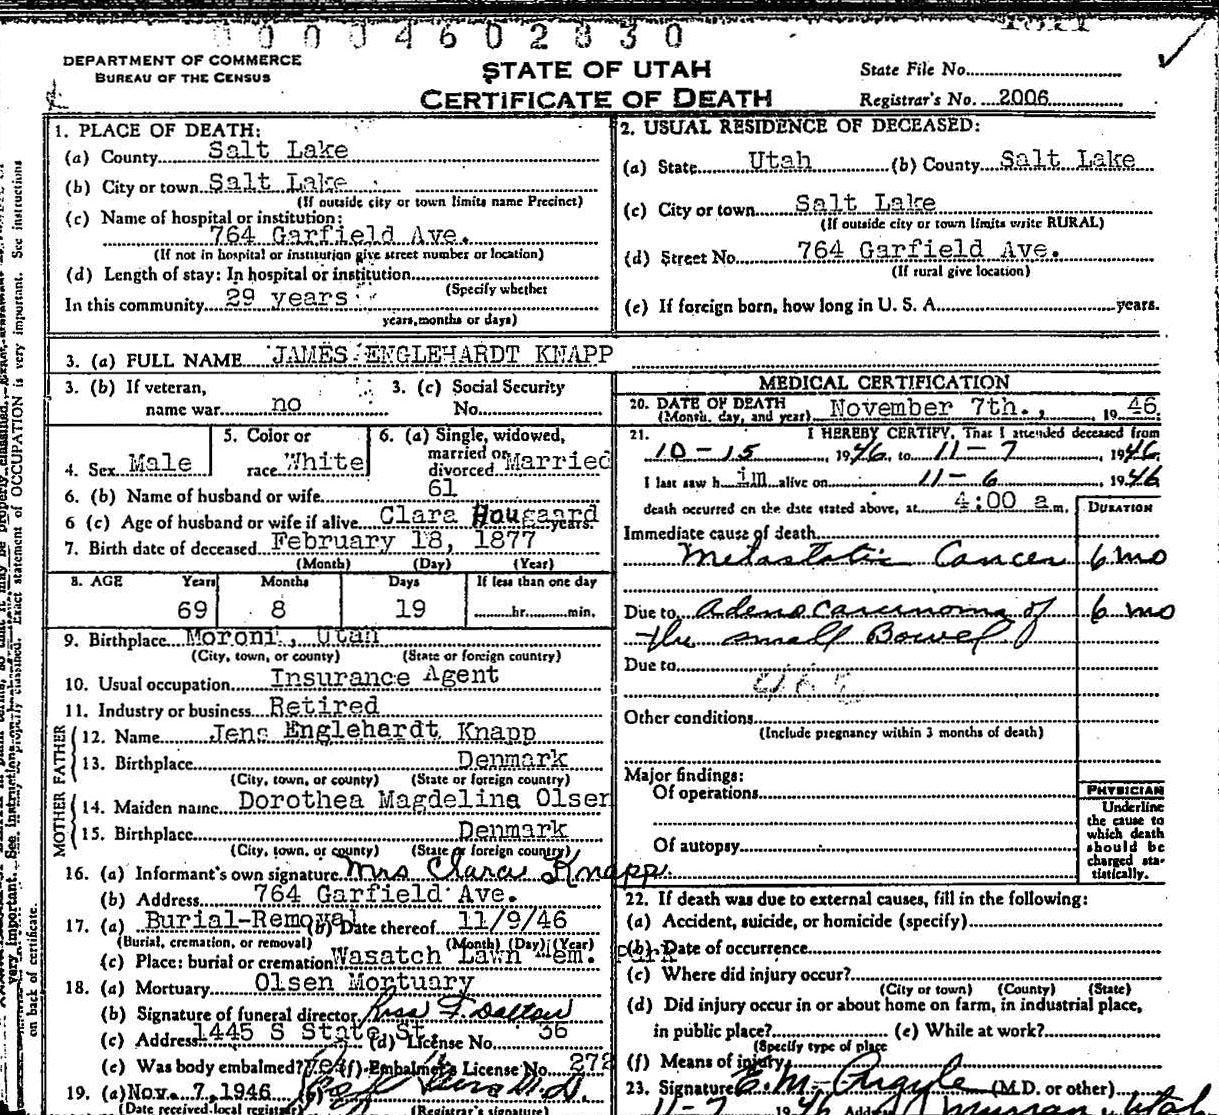 00004602830
DEPARTMENT OF COMMERCE
BUREAU OF THE CENSUS
STATE OF UTAH
CERTIFICATE OF DEATH
State File No.
Registrar's No. 2006
1. PLACE OF DEATH:
(a) County Salt Lake
(b) City or town Salt Lake
(If outside city or town limits name Precinct)
(c) Name of hospital or institution:
764 Garfield Ave.
(If not in hospital or institution give street number or location)
(d) Length of stay: In hospital or institution
(Specify whether
In this community 29 years
years, months or days)
2. USUAL RESIDENCE OF DECEASED:
(a) State Utah (b) County Salt Lake
(c) City or town Salt Lake
(If outside city or town limits write RURAL)
(d) Street No. 764 Garfield Ave.
(If rural give location)
(e) If foreign born, how long in U. S. A. years.
3. (a) FULL NAME JAMES ENGLEHARDT KNAPP
3. (b) If veteran,
name war no
3. (c) Social Security
No.
4. Sex Male
5. Color or
race White
6. (a) Single, widowed,
married or
divorced Married
6. (b) Name of husband or wife 61
6 (c) Age of husband or wife if alive Clara Hougaard years.
7. Birth date of deceased February 18, 1877
(Month) (Day) (Year)
8. AGE Years Months Days If less than one day
69 8 19 hr. min.
9. Birthplace Moroni, Utah
(City, town, or county) (State or foreign country)
10. Usual occupation Insurance Agent
11. Industry or business Retired
FATHER
12. Name Jens Englehardt Knapp
13. Birthplace Denmark
(City, town, or county) (State or foreign country)
MOTHER
14. Maiden name Dorothea Magdelina Olsen
15. Birthplace Denmark
(City, town, or county) (State or foreign country)
16. (a) Informant's own signature Mrs Clara Knapp
(b) Address 764 Garfield Ave.
17. (a) Burial-Removal (b) Date thereof 11/9/46
(Burial, cremation, or removal) (Month) (Day) (Year)
(c) Place: burial or cremation Wasatch Lawn Mem. Park
18. (a) Mortuary Olsen Mortuary
(b) Signature of funeral director
(c) Address 1445 S State St (d) License No. 36
(e) Was body embalmed? yes (f) Embalmer's License No. 272
19. (a) Nov. 7, 1946 (b)
(Date received local registrar) (Registrar's signature)
MEDICAL CERTIFICATION
20. DATE OF DEATH
(Month, day, and year) November 7th., 1946
21. I HEREBY CERTIFY, That I attended deceased from
10-15, 1946, to 11-7, 1946
I last saw him alive on 11-6, 1946
death occurred on the date stated above, at 4:00 a.m.
DURATION
Immediate cause of death
Metastatic Cancer 6 mo
Due to Adenocarcinoma of 6 mo
the small Bowel
Due to
Other conditions
(Include pregnancy within 3 months of death)
Major findings:
Of operations
Of autopsy
PHYSICIAN
Underline
the cause to
which death
should be
charged sta-
tistically.
22. If death was due to external causes, fill in the following:
(a) Accident, suicide, or homicide (specify)
(b) Date of occurrence
(c) Where did injury occur?
(City or town) (County) (State)
(d) Did injury occur in or about home on farm, in industrial place,
in public place? (e) While at work?
(Specify type of place
(f) Means of injury
23. Signature E.M. Argyle (M.D. or other)
11-7 1946 Murray Utah
very important. See instructions
on back of certificate.
Exact statement of OCCUPATION is very important. See instructions